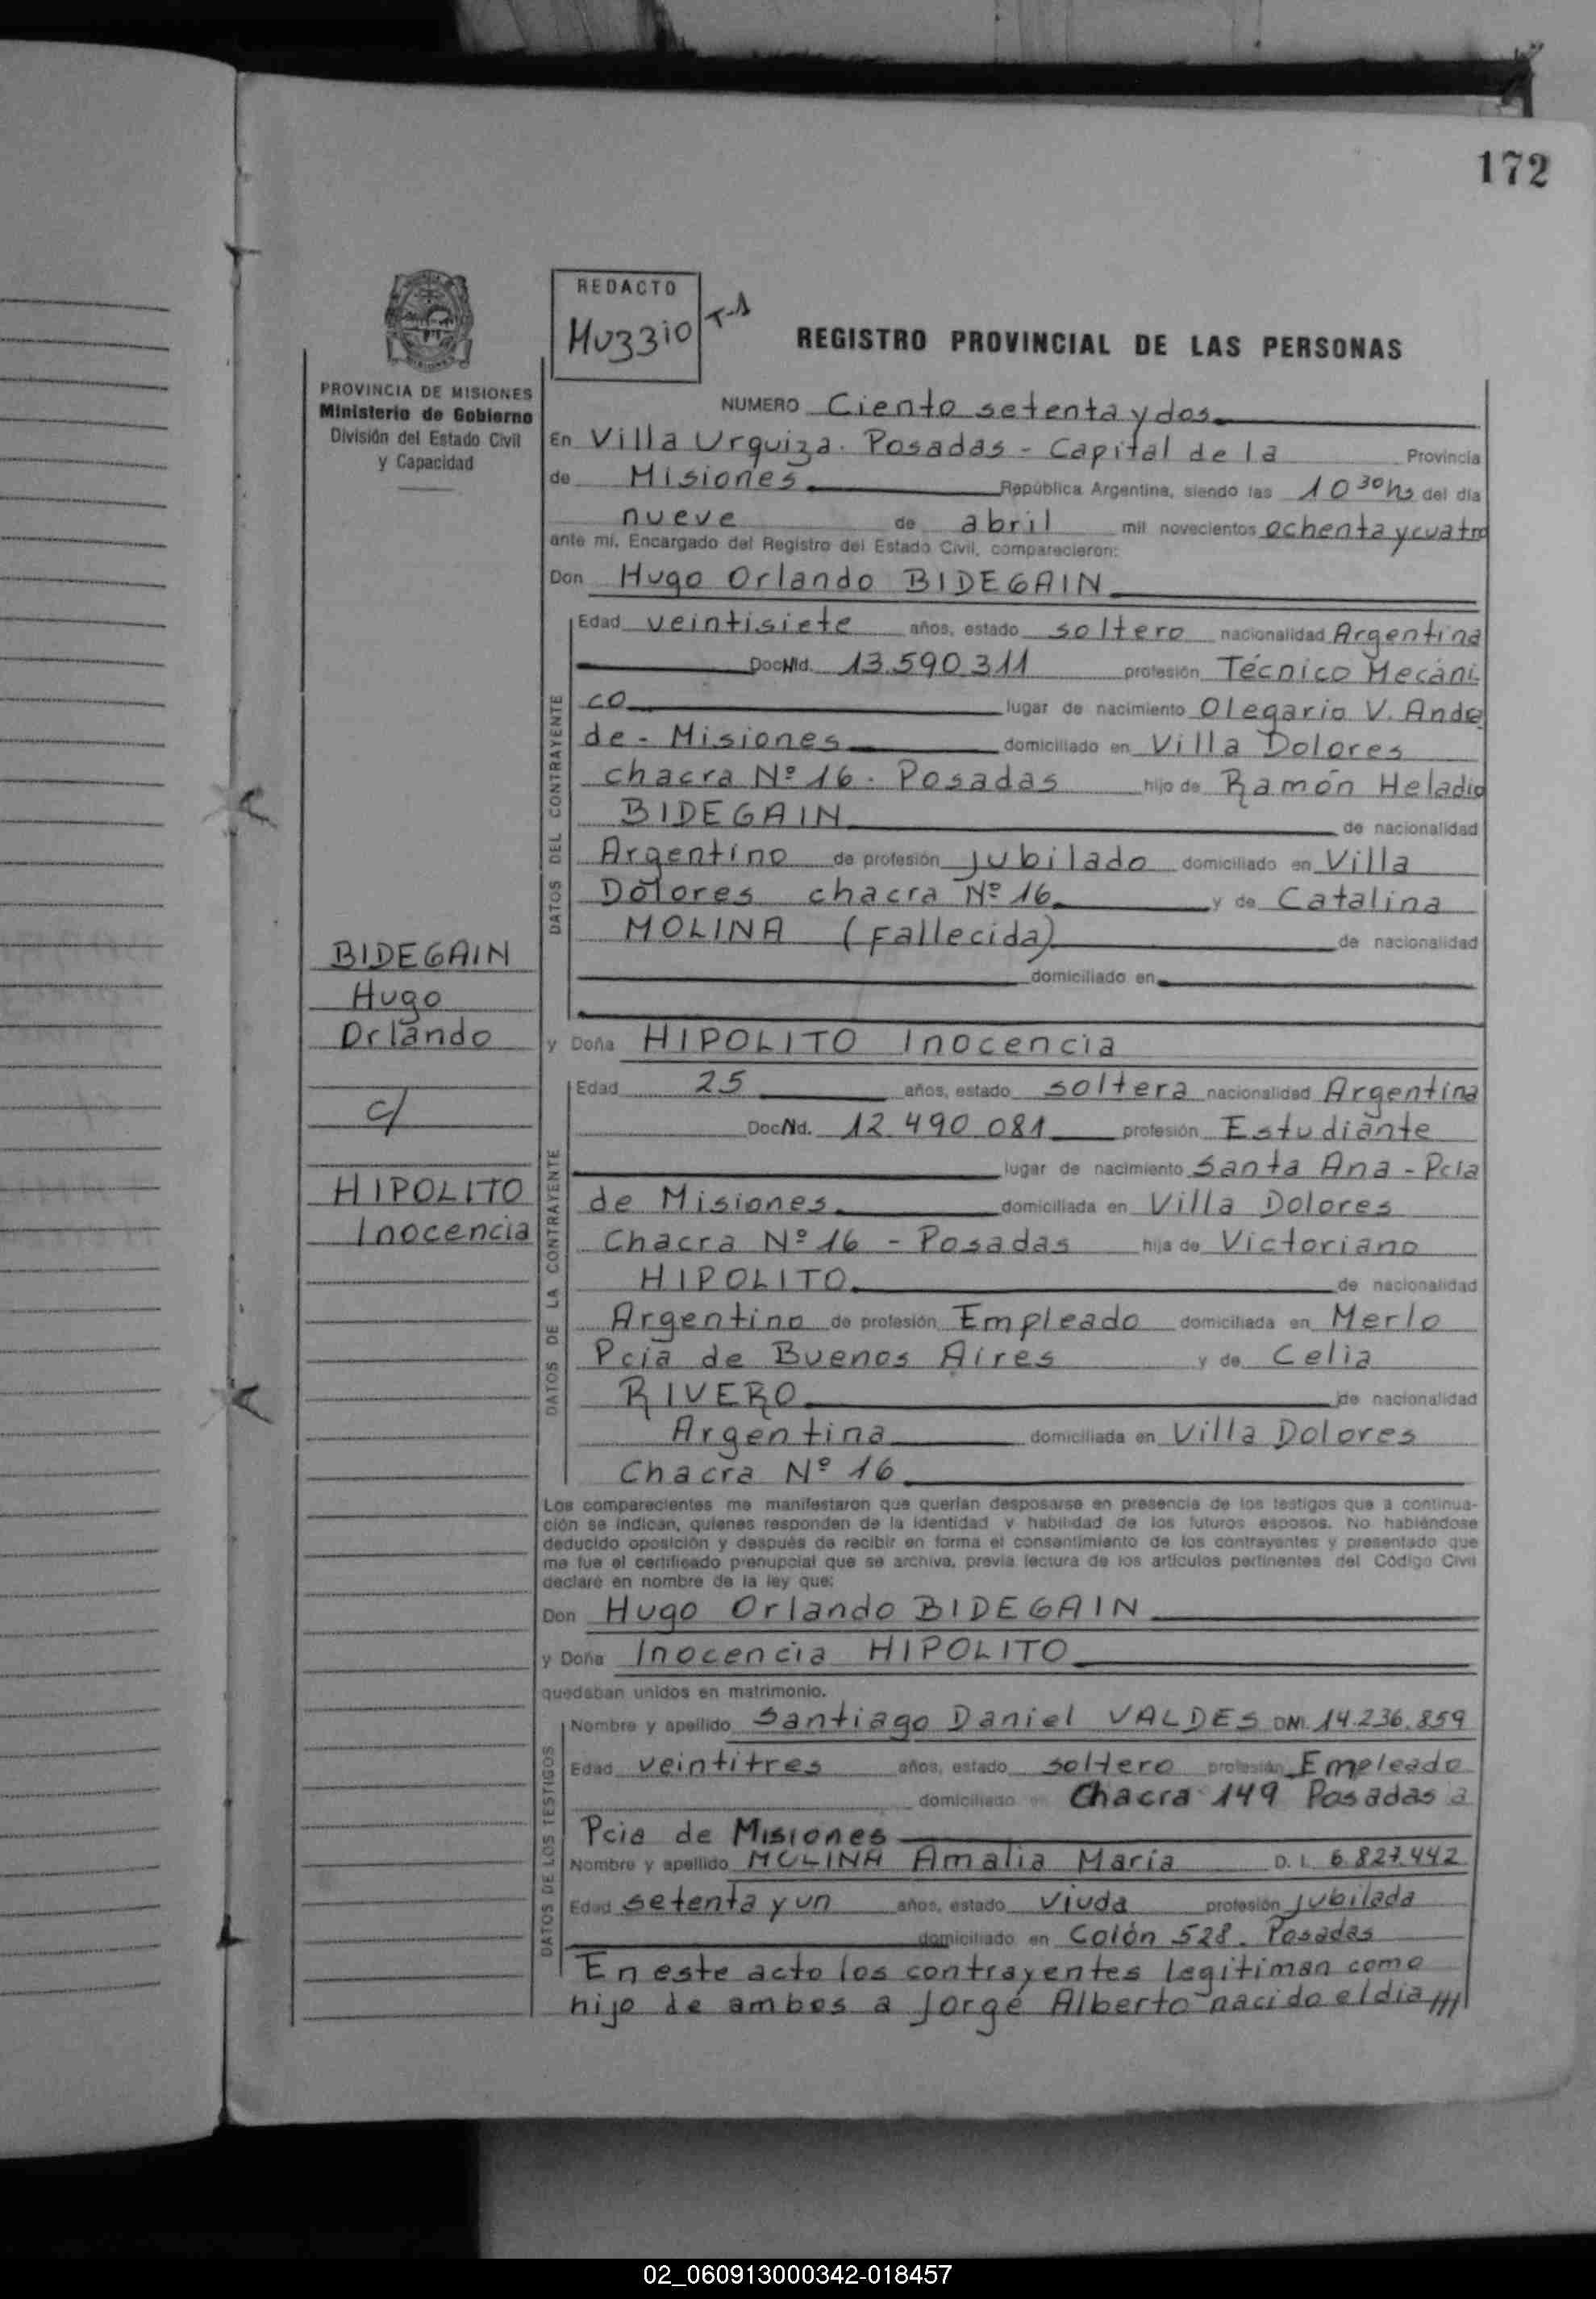 172
REDACTO
MUZZIO T-1
REGISTRO PROVINCIAL DE LAS PERSONAS
PROVINCIA DE MISIONES
Ministerio de Gobierno
División del Estado Civil
y Capacidad
NUMERO Ciento setenta y dos
En Villa Urquiza. Posadas - Capital de la Provincia
de Misiones República Argentina, siendo las 10 30 hs del día
nueve de abril mil novecientos ochenta y cuatro
ante mí, Encargado del Registro del Estado Civil, comparecieron:
Don Hugo Orlando BIDEGAIN
DATOS DEL CONTRAYENTE
Edad veintisiete años, estado soltero nacionalidad Argentina
Doc. Nd. 13.590.311 profesión Técnico Mecáni
co lugar de nacimiento Olegario V. Andra
de - Misiones domiciliado en Villa Dolores
chacra Nº 16 - Posadas hijo de Ramón Heladio
BIDEGAIN de nacionalidad
Argentino de profesión jubilado domiciliado en Villa
Dolores chacra Nº 16 y de Catalina
MOLINA (Fallecida) de nacionalidad
domiciliado en
BIDEGAIN
Hugo
Orlando
c/
HIPOLITO
Inocencia
y Doña HIPOLITO Inocencia
DATOS DE LA CONTRAYENTE
Edad 25 años, estado soltera nacionalidad Argentina
Doc. Nd. 12.490.081 profesión Estudiante
lugar de nacimiento Santa Ana - Pcia
de Misiones domiciliada en Villa Dolores
Chacra Nº 16 - Posadas hija de Victoriano
HIPOLITO de nacionalidad
Argentino de profesión Empleado domiciliada en Merlo
Pcia de Buenos Aires y de Celia
RIVERO de nacionalidad
Argentina domiciliada en Villa Dolores
Chacra Nº 16
Los comparecientes me manifestaron que querían desposarse en presencia de los testigos que a continua-
ción se indican, quienes responden de la identidad y habilidad de los futuros esposos. No habiéndose
deducido oposición y después de recibir en forma el consentimiento de los contrayentes y presentado que
me fue el certificado prenupcial que se archiva, previa lectura de los artículos pertinentes del Código Civil
declaré en nombre de la ley que:
Don Hugo Orlando BIDEGAIN
y Doña Inocencia HIPOLITO
quedaban unidos en matrimonio.
DATOS DE LOS TESTIGOS
Nombre y apellido Santiago Daniel VALDES DNI. 14.236.859
Edad veintitres años, estado soltero profesión Empleado
domiciliado en Chacra 149 Posadas
Pcia de Misiones
Nombre y apellido MOLINA Amalia María D. I. 6.827.442
Edad setenta y un años, estado viuda profesión jubilada
domiciliado en Colón 528. Posadas
En este acto los contrayentes legitiman como
hijo de ambos a Jorge Alberto nacido el día ///
02_060913000342-018457